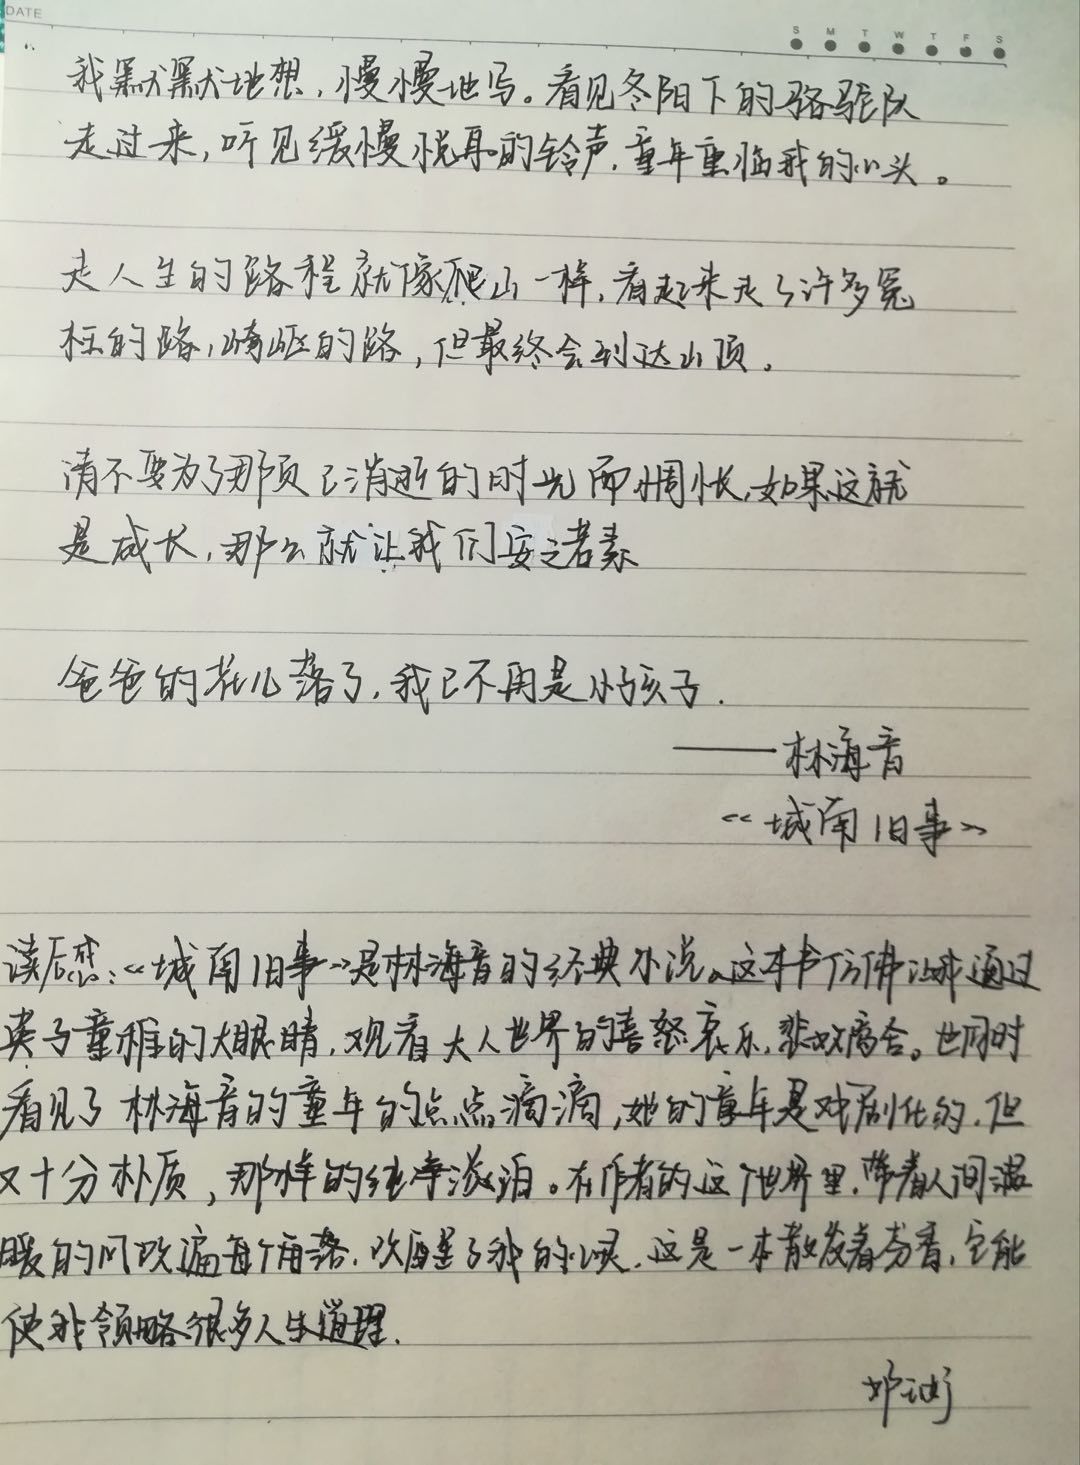 DATE
S M T W T F S
我默默地想，慢慢地写。看见冬阳下的骆驼队
走过来，听见缓慢悦耳的铃声，童年重临我的心头。
走人生的路程就像爬山一样，看起来走了许多冤
枉的路，崎岖的路，但最终会到达山顶。
请不要为了那页已消逝的时光而惆怅，如果这就
是成长，那么就让我们安之若素
爸爸的花儿落了，我已不再是小孩子.
——林海音
《城南旧事》
读后感：《城南旧事》是林海音的经典小说。这本书仿佛让我通过
英子童稚的大眼睛，观看大人世界的喜怒哀乐，悲欢离合。也同时
看见了林海音的童年的点点滴滴，她的童年是戏剧化的，但
又十分朴质，那样的纯净淡泊。在作者的这个世界里，带着人间温
暖的风吹遍每个角落，吹醒了我的心灵，这是一本散发着芬香，它能
使我领略很多人生道理.